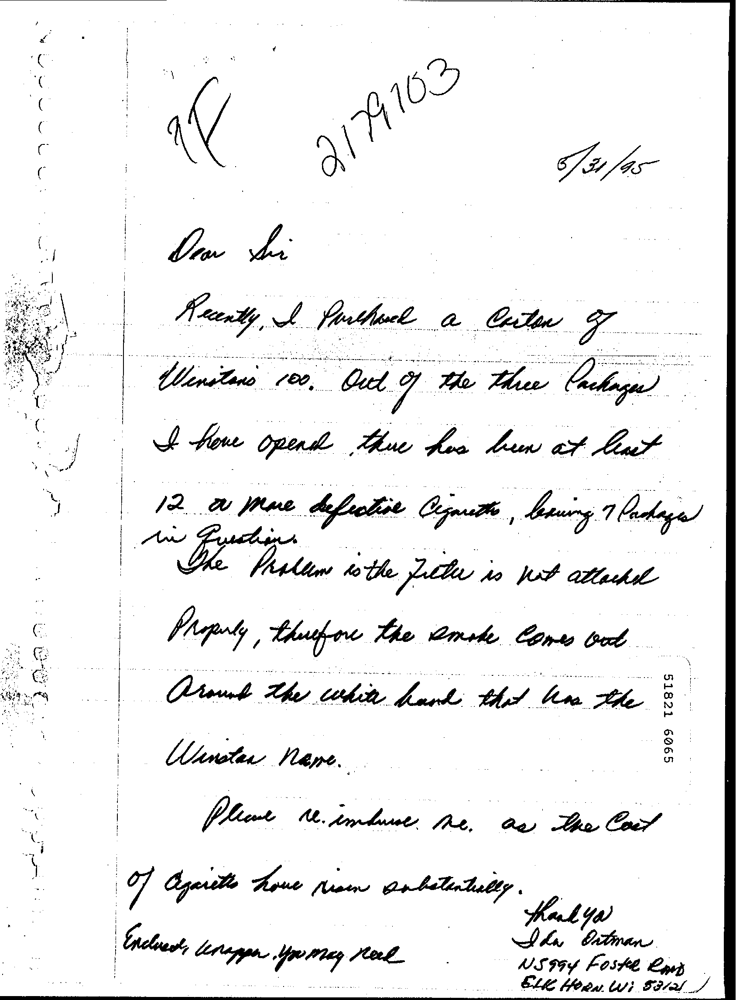 7F
2179703
5/31/95
Dear Sir
Recently, I Purchased a Carton of
Winstons 100. Out of the three Packages
I have opend, there has been at least
12 or more defective Cigaretts, leaving 7 Packages
in Question.
The Problem is the Filter is not attached
Properly, therefore the smoke Comes out
Around the white band that has the
Winston Name.
Please re.imburse. me. as the Cost
of Cigaretts have risen substantially.
thank yo
Ida Ortman
Enclosed, Wrapper. you may need
N5994 Foster Road
ELK HORN. Wi 53121
51821 6065